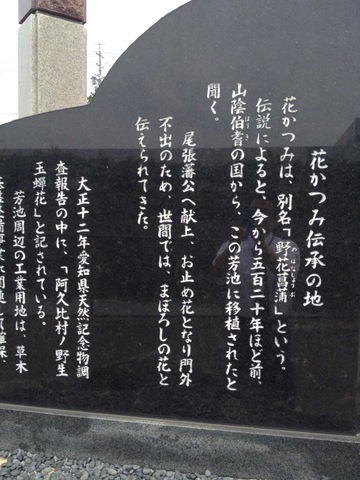 花かつみ伝承の地
花かつみは、別名「野花菖蒲」という。
伝説によると、今から五百二十年ほど前、
山陰伯耆の国から、この芳池に移植されたと
聞く。
尾張藩公へ献上、お止め花となり門外
不出のため、世間では、まぼろしの花と
伝えられてきた。
大正十二年愛知県天然記念物調
査報告の中に、「阿久比村ノ野生
玉蟬花」と記されている。
芳池周辺の工業用地は、草木